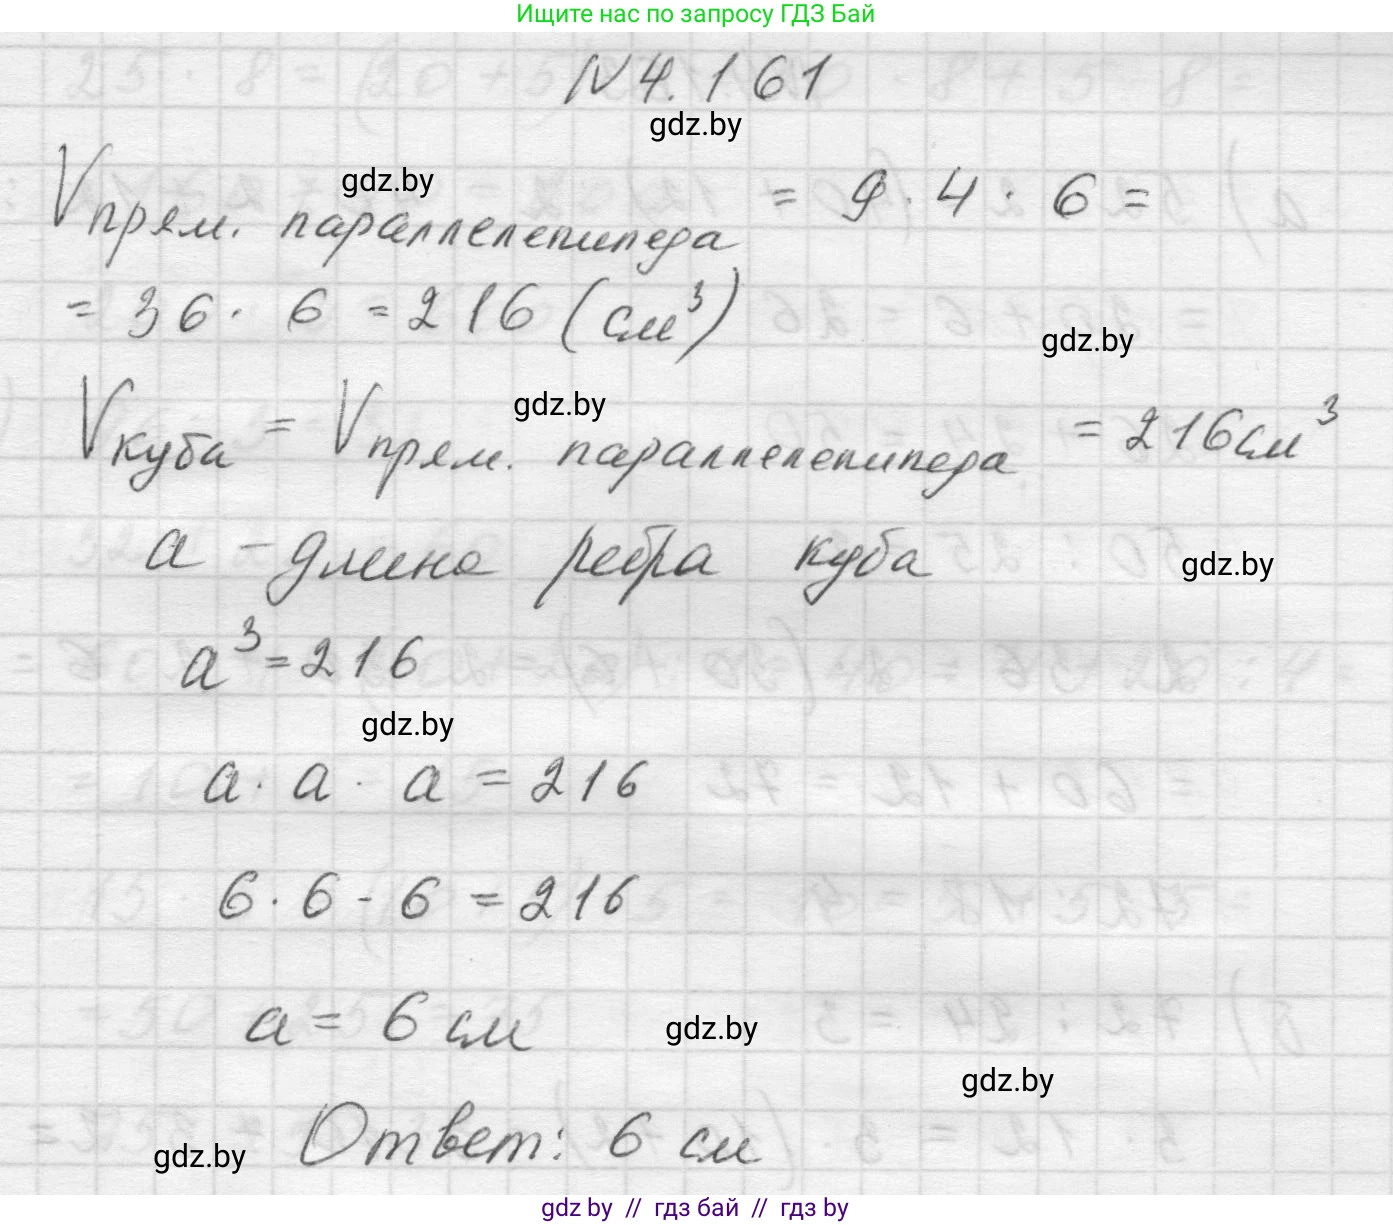 Ищите нас по запросу ГДЗ Бай
N 4.161
gdz.by
gdz.by
Vпрям. параллелепипеда = 9 · 4 · 6 =
= 36 · 6 = 216 (см³)
gdz.by
gdz.by
Vкуба = Vпрям. параллелепипеда = 216 см³
a – длина ребра куба
gdz.by
a³ = 216
gdz.by
a · a · a = 216
6 · 6 · 6 = 216
a = 6 см
gdz.by
gdz.by
Ответ: 6 см
gdz.by
gdz by // гдз бай // гдз by